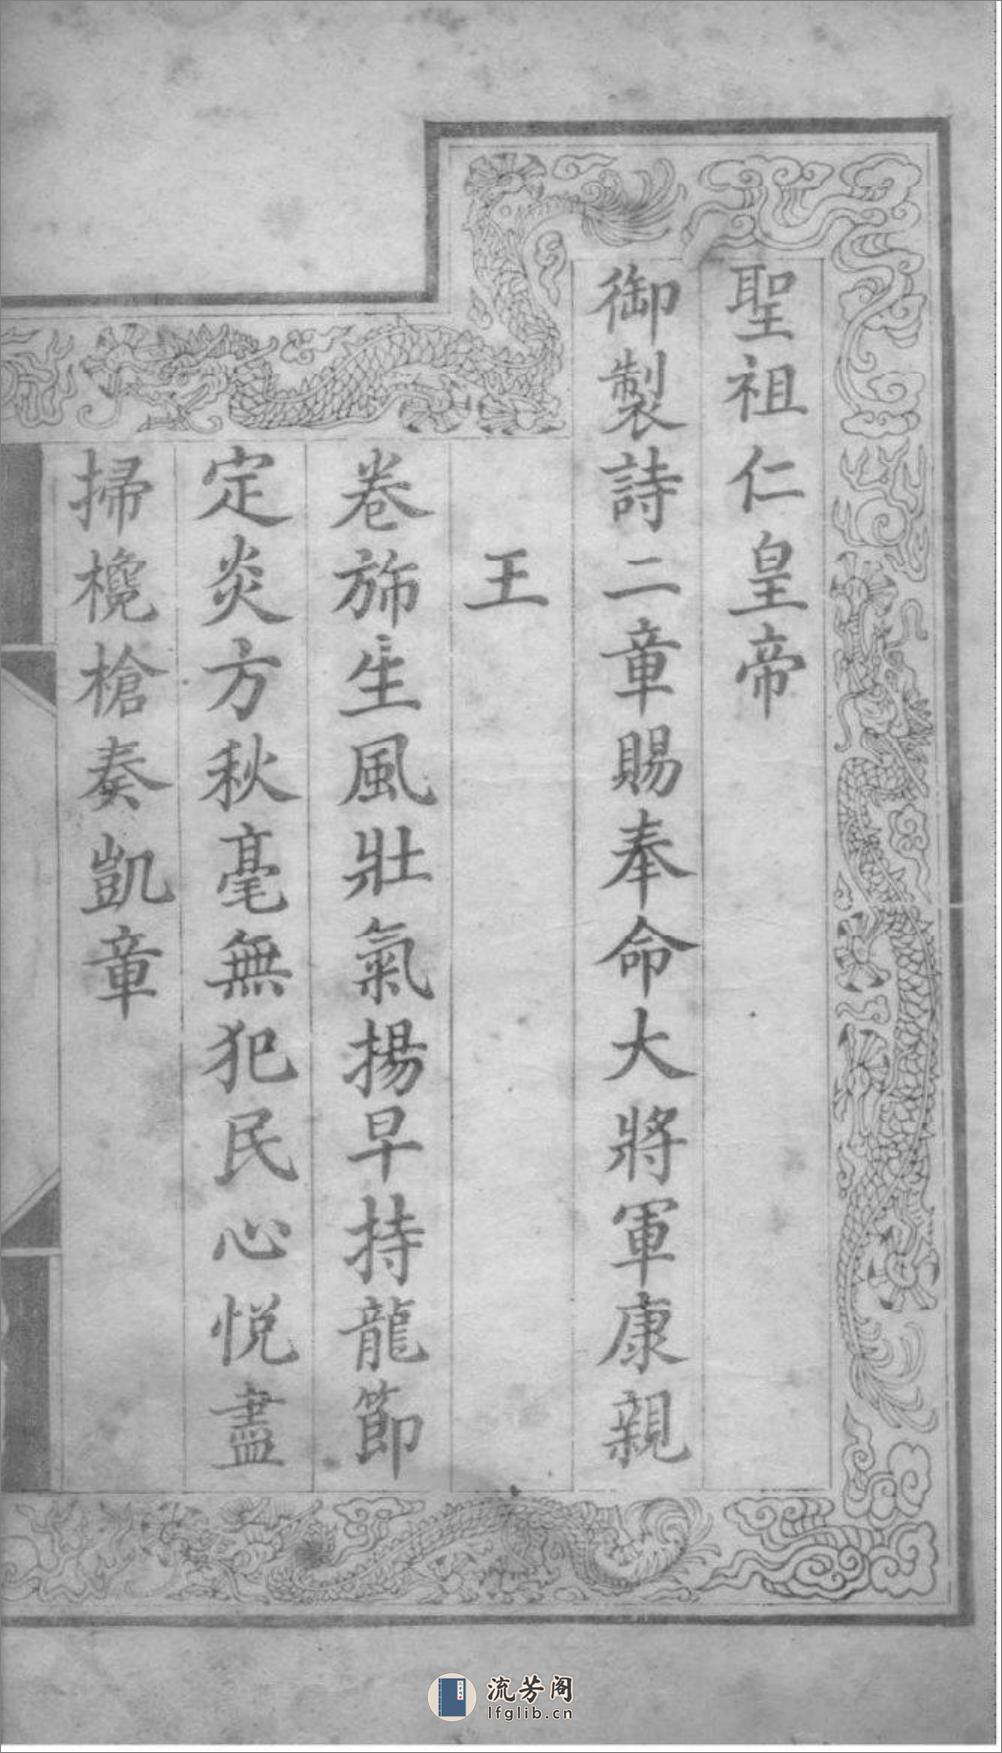 聖祖仁皇帝
御製詩二章賜奉命大將軍康親
王
卷斾生風壯氣揚早持龍節
定炎方秋毫無犯民心悅盡
掃欃槍奏凱章
流芳阁
lfglib.cn